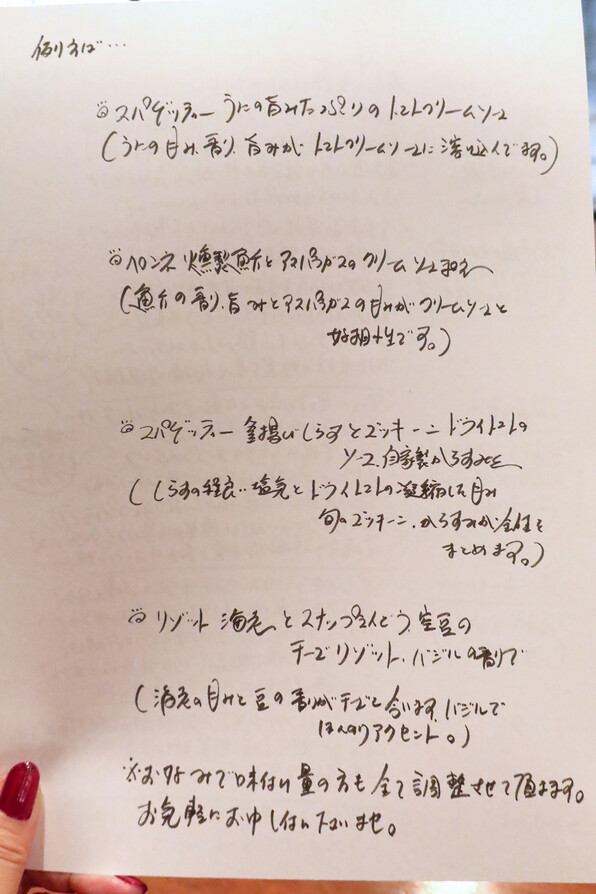 例えば…
スパゲッティー うにの旨みたっぷりの トマトクリームソース
(うにの甘み、香り、旨みが、トマトクリームソースに溶け込んでます。)
ペンネ 燻製魚介とアスパラガスの クリームソース和え
(魚介の香り、旨みとアスパラガスの甘みがクリームソースと
好相性です。)
スパゲッティー 釜揚げしらすとズッキーニ ドライトマトの
ソース、自家製からすみと
(しらすの程良い塩気とドライトマトの凝縮した甘み
旬のズッキーニ、からすみが全体を
まとめます。)
リゾット 海老とスナップえんどう、空豆の
チーズリゾット、バジルの香りで
(海老の甘みと豆の香りがチーズと合います、バジルで
ほんのりアクセント。)
※お好みで味付け、量の方も全て調整させて頂きます。
お気軽にお申し付け下さいませ。